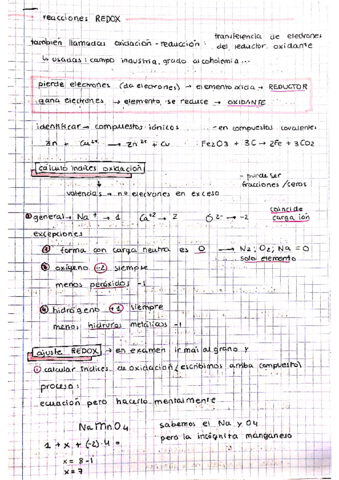 reacciones REDOX
transferencia de electrones
también llamadas oxidación-reducción del reductor oxidante
usadas: campo industria, grado alcoholemia...
pierde electrones (da electrones) → elemento oxida → REDUCTOR
gana electrones → elemento se reduce → OXIDANTE
identificar → compuestos iónicos ... en compuestos covalentes
Zn + Cu²⁺ → Zn²⁺ + Cu Fe2O3 + 3C → 2Fe + 3CO2
cálculo índices oxidación - puede ser
fracciones/ceros
valencias → nº electrones en exceso
general → Na⁺ → 1 Ca⁺² → 2 O²⁻ → -2 coincide
carga ion
excepciones
forma con carga neutra es 0 → N2; O2; Na = 0
solo elemento
oxígeno -2 siempre
menos peróxidos -1
hidrógeno +1 siempre
menos hidruros metálicos -1
ajuste REDOX → en examen ir mal al grano y
calcular índices de oxidación (escribimos arriba compuesto)
proceso:
ecuación pero hacerlo mentalmente
NaMnO4 sabemos el Na y O4
1 + x + (-2)·4 = pero la incógnita manganeso
x = 8-1
x = 7